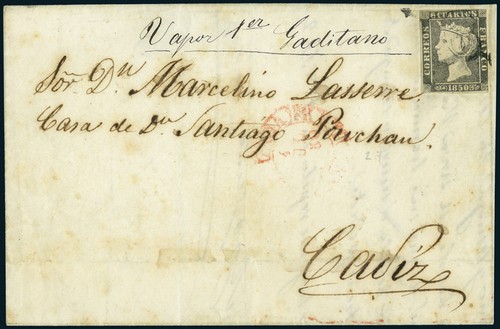 Vapor 1er Gaditano
6 CUARTOS
CORREOS
FRANCO
1850
Sor. Dn Marcelino Lasserre.
Casa de Dn Santiago
Cadiz